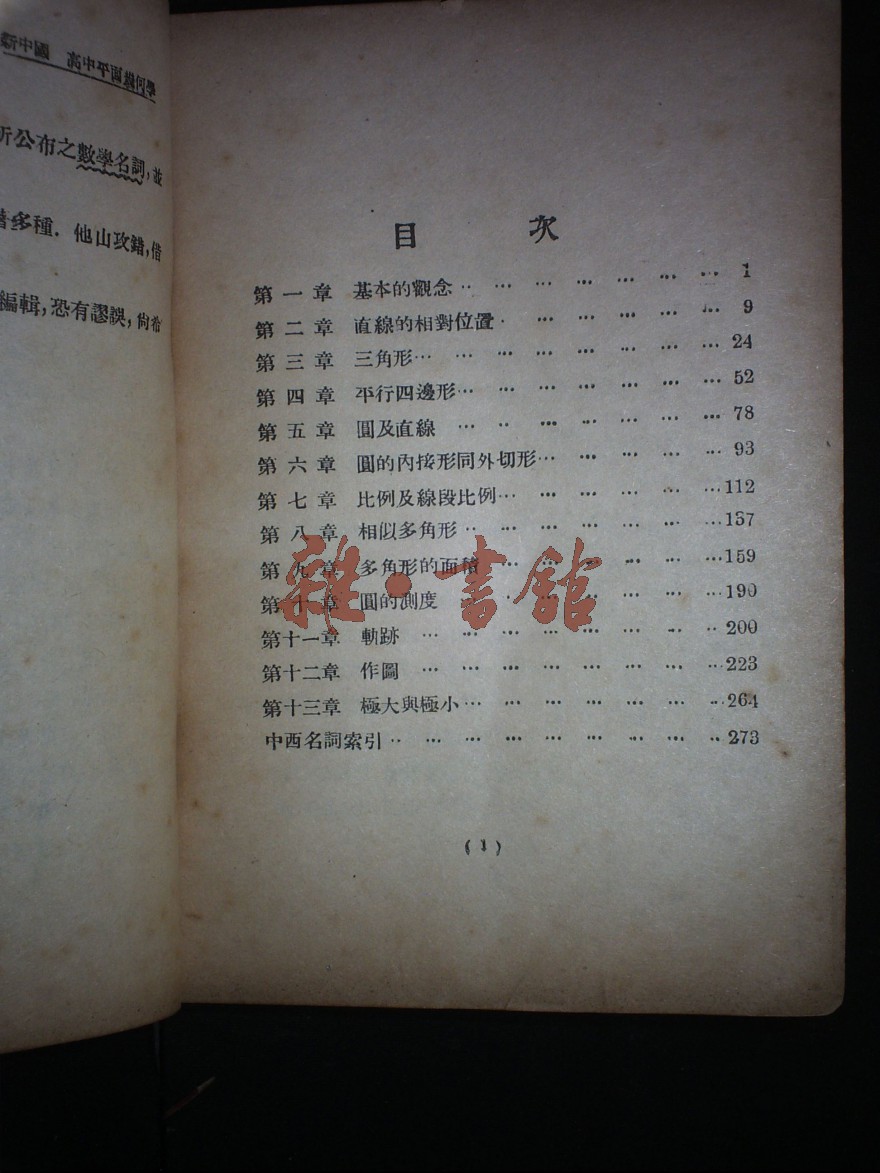 新中國　高中平面幾何學
所公布之數學名詞,並
著多種．他山攻錯,借
編輯,恐有謬誤,尙希
目　次
第一章　基本的觀念 … … … … … … … 1
第二章　直線的相對位置 … … … … … … 9
第三章　三角形 … … … … … … … … 24
第四章　平行四邊形 … … … … … … … 52
第五章　圓及直線 … … … … … … … 78
第六章　圓的內接形同外切形 … … … … … 93
第七章　比例及線段比例 … … … … … … 112
第八章　相似多角形 … … … … … … … 137
第九章　多角形的面積 … … … … … … 159
第十章　圓的測度 … … … … … … … 190
第十一章　軌跡 … … … … … … … … 200
第十二章　作圖 … … … … … … … … 223
第十三章　極大與極小 … … … … … … … 264
中西名詞索引 … … … … … … … … … 273
(1)
雜·書館